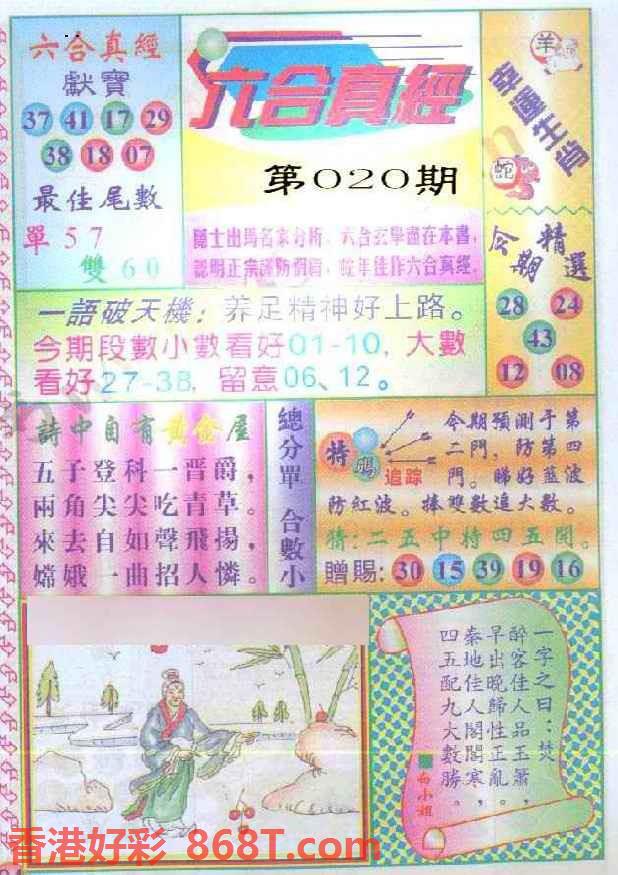 六合真經
獻寶
37 41 17 29
38 18 07
最佳尾數
單57
雙60
六合真經
第020期
隱士出瑪名家分析，六合玄學盡在本書，
說明正宗謹防假冒，蛇年佳作六合真經。
羊
幸運生肖
蛇
今期精選
28 24
43
12 08
一語破天機：养足精神好上路。
今期段數小數看好01-10，大數
看好27-38，留意06、12。
詩中自有黃金屋
五子登科一晋爵，
兩角尖尖吃青草。
來去自如聲飛揚，
嫦娥一曲招人憐。
總分單 合數小
特碼
追踪
今期預測于第
二門，防第四
門。睇好藍波
防紅波。捧雙數追大數。
猜：二五中特四五開。
贈賜：30 15 39 19 16
一字之曰：焚
醉客佳人品玉簫，
早出晚歸性正亂。
秦地佳人閣閣寒，
四五配九大數勝。
白小姐
香港好彩 868T.com